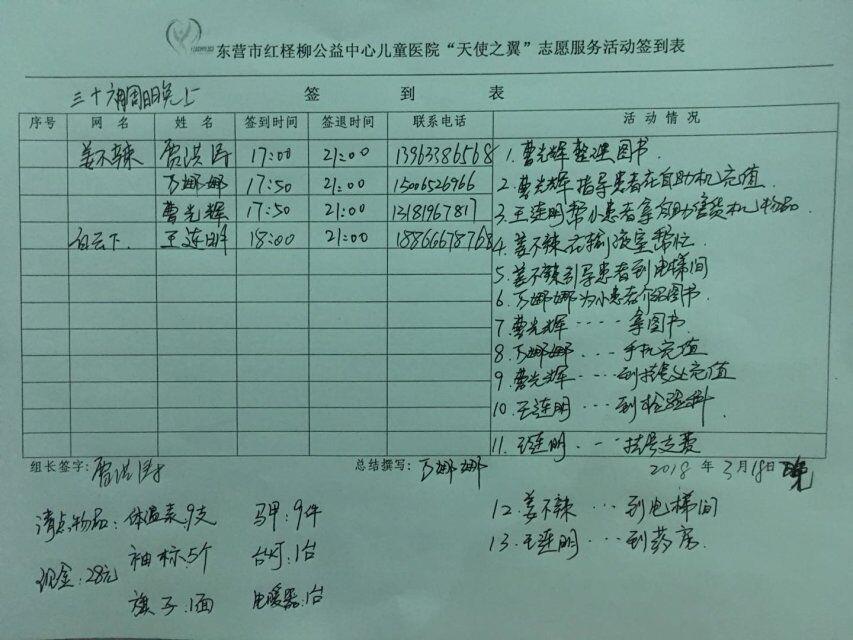 东营市红柽柳公益中心儿童医院“天使之翼”志愿服务活动签到表
三十六期周日晚上
签 到 表
序号 网 名 姓 名 签到时间 签退时间 联系电话 活 动 情 况
姜不辣 贾洪涛 17:00 21:00 13963386568
万娜娜 17:50 21:00 15006526966
曹光辉 17:50 21:00 13181967817
白云下 王连明 18:00 21:00 18866678768
1.曹光辉整理图书.
2.曹光辉指导患者在自助机充值
3.王连明帮小患者拿自助售货机物品
4.姜不辣在输液室帮忙
5.姜不辣引导患者到电梯间
6.万娜娜为小患者介绍图书.
7.曹光辉···· 拿图书
8.万娜娜···手机充值
9.曹光辉···到挂号处充值
10.王连明···到检验科
11.王连明···挂号交费
组长签字:贾洪涛 总结撰写:万娜娜 2018年3月18日晚
12.姜不辣···到电梯间
13.王连明···到药房.
清点物品:体温表9支 马甲:9件
袖标:5个 台灯:1台
现金:28元
旗子:1面 电暖器:1台